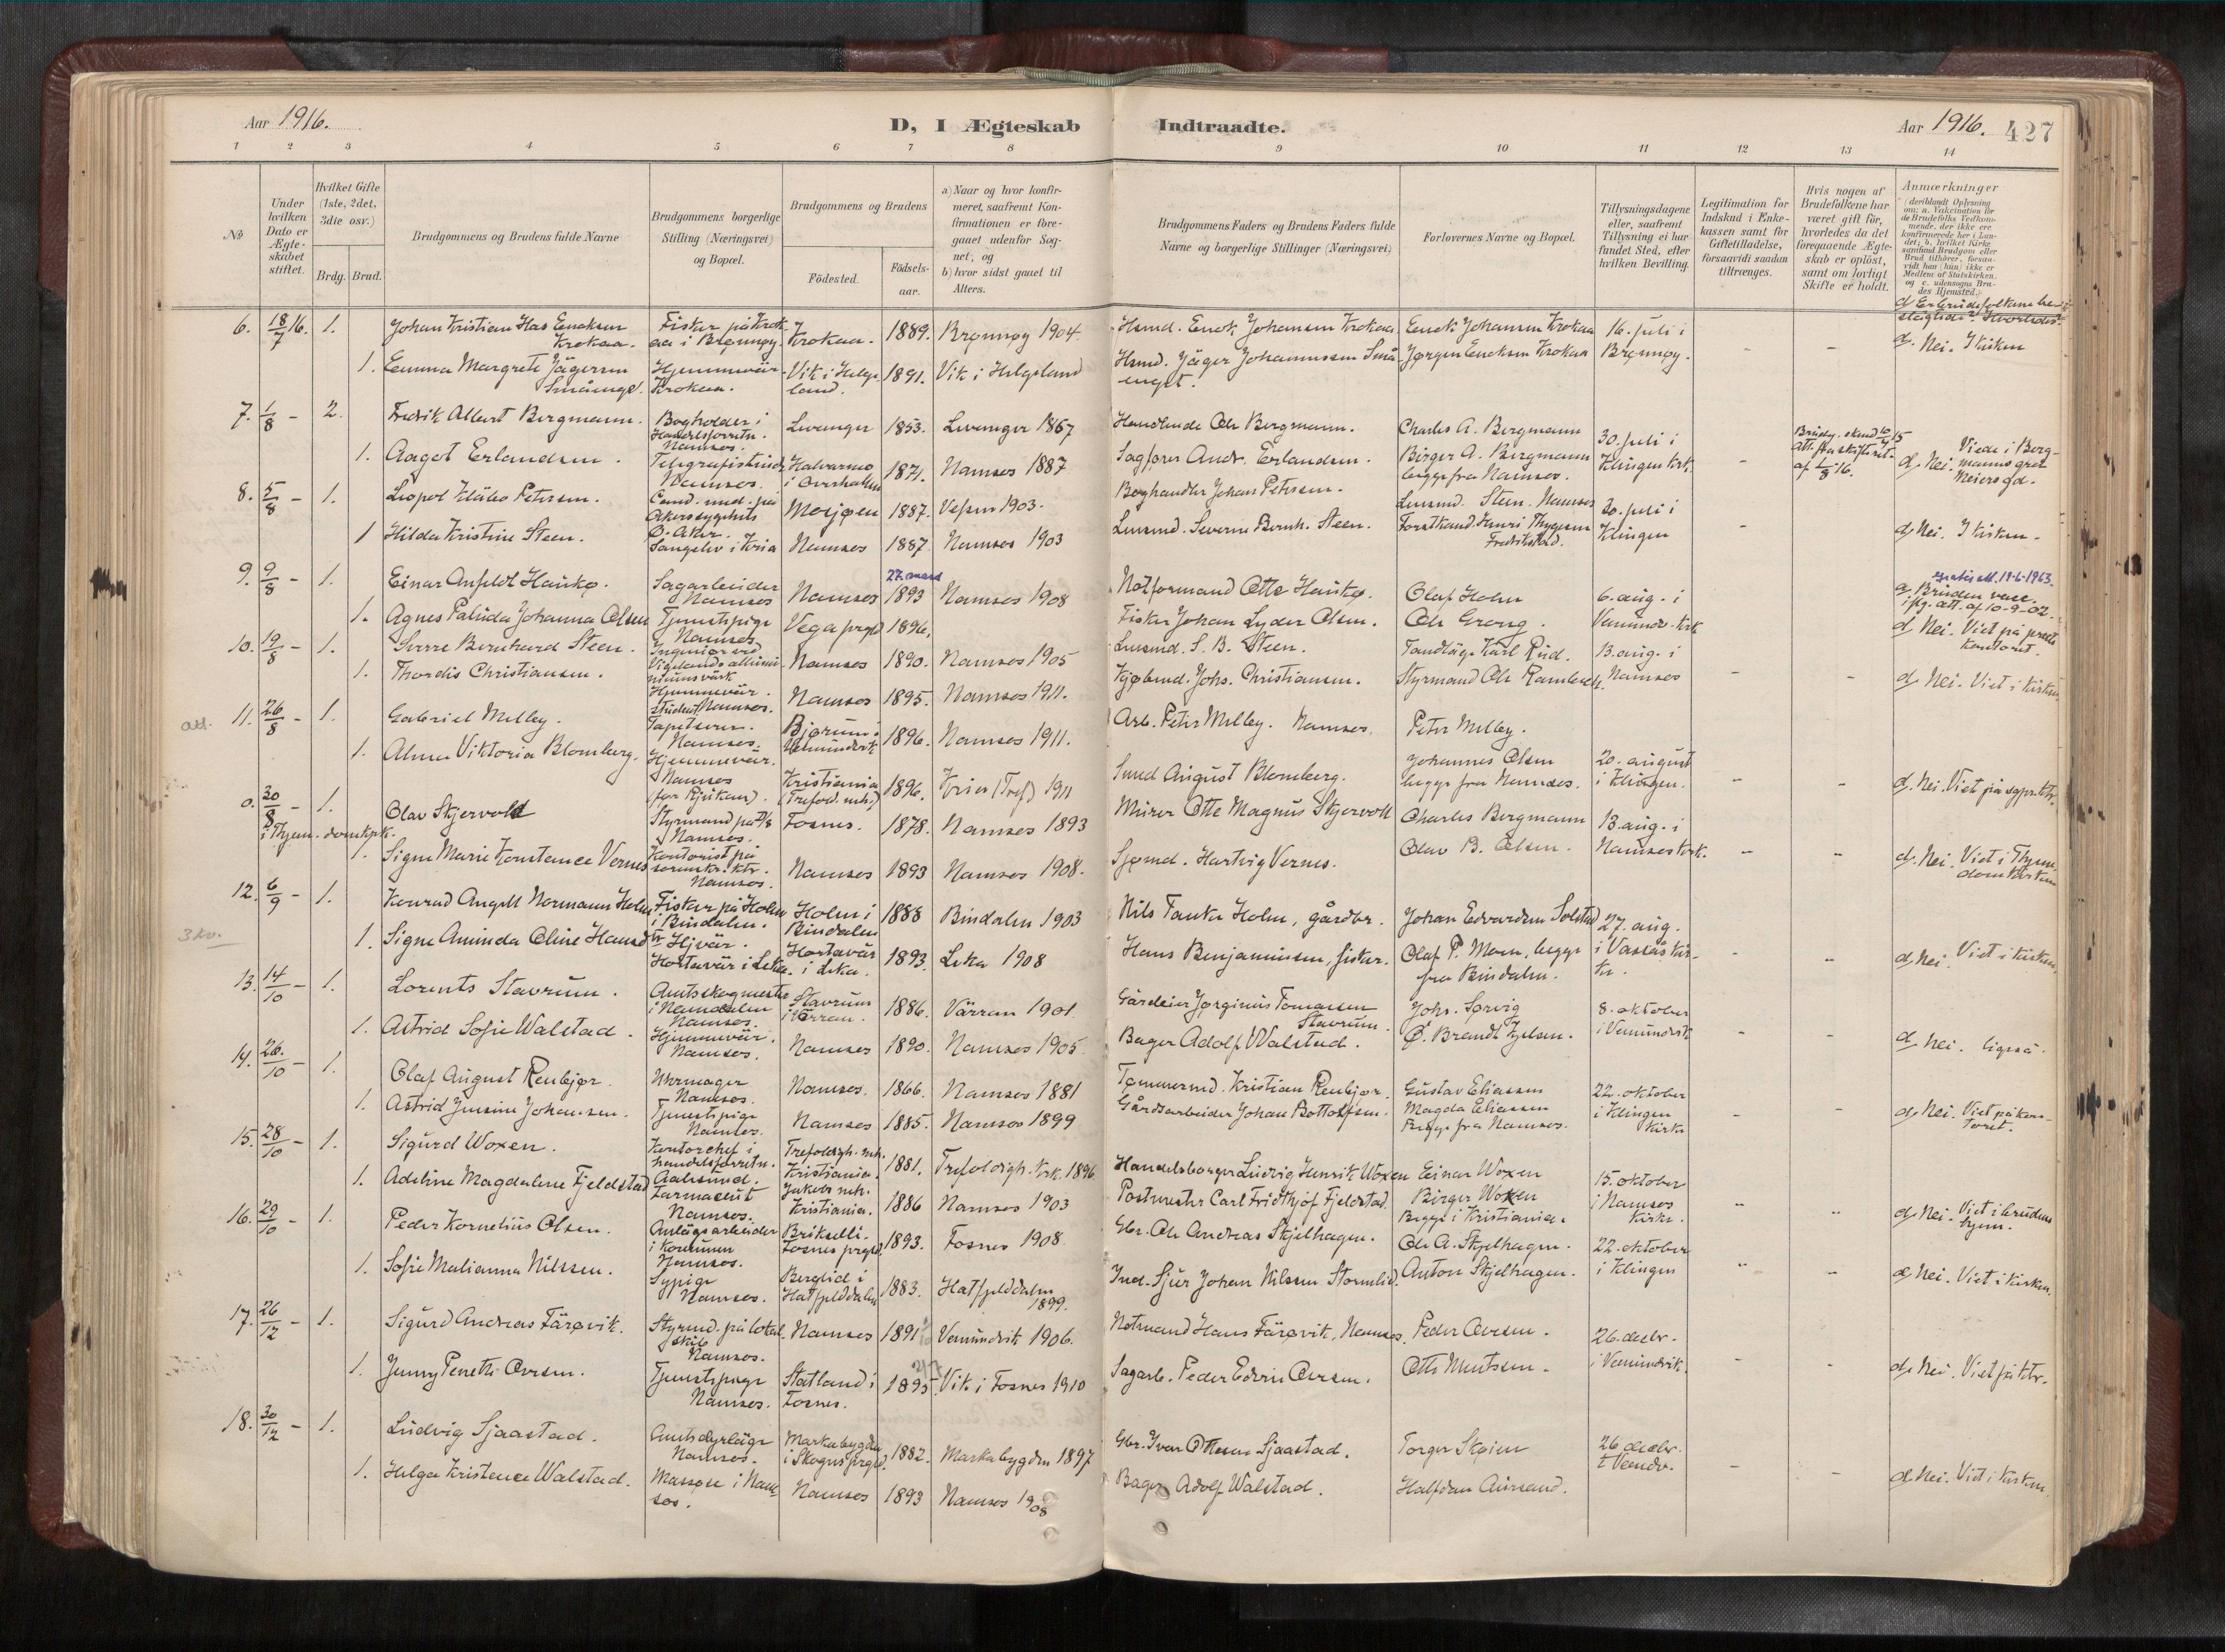 Aar 1916.
D, I Ægteskab
Indtraadte.
Aar 1916. 427
1 2 3 4 5 6 7 8 9 10 11 12 13 14
№
Under hvilken Dato er Ægte-skabet stiftet.
Hvilket Gifte (1ste, 2det, 3die osv.)
Brdg. Brud.
Brudgommens og Brudens fulde Navne
Brudgommens borgerlige Stilling (Næringsvei) og Bopæl.
Brudgommens og Brudens
Födested.
Födsels-aar.
a) Naar og hvor konfir-meret, saafremt Kon-firmationen er fore-gaaet udenfor Sog-net, og
b) hvor sidst gaaet til Alters.
Brudgommens Faders og Brudens Faders fulde Navne og borgerlige Stillinger (Næringsvei)
Forlovernes Navne og Bopæl.
Tillysningsdagene eller, saafremt Tillysning ei har fundet Sted, efter hvilken Bevilling.
Legitimation for Indskud i Enke-kassen samt for Giftetilladelse, forsaavidt saadan tiltrænges.
Hvis nogen af Brudefolkene har været gift för, hvorledes da det foregaaende Ægte-skab er oplöst, samt om lovligt Skifte er holdt.
Anmærkninger
6. 18/7 16. 1. Johan Kristian Has Encksen Krokaa. Fisker på Krok-aa i Brønnøy. Krokaa. 1889. Brønnøy 1904. Hsmd. Enck Johansen Krokaa. Enck Johansen Krokaa 16. juli i
1. Emma Margrete Jägersen Småenget. Hjemmevär. Krokaa. Vik i Helge-land. 1891. Vik i Helgeland Hsmd. Jäger Johannessen Små-enget. Jørgen Encksen Krokaa Brønnøy. - - d. Nei. I kirken
7. 1/8 - 2. Fredrik Albert Bergmann. Bogholder i Handelsforretn. Namsos. Levanger 1853. Levanger 1867 Handlende Ole Bergmann. Charles A. Bergmann 30. juli i
1. Aagot Erlandsen. Telegrafistinde Namsos. Halvarmo i Overhallen 1871. Namsos 1887 Sagfører Andr. Erlandsen. Birger A. Bergmann begge fra Namsos. Klingen kirk. - d. Nei. Viede i Berg-manns gred Meiersgd.
8. 5/8 - 1. Leopol Kläbo Petersen. Cand. med. på Akers sygehus Ø. Aker. Mosjøen 1887. Vefsen 1903. Boghandler Johan Petersen. Lensmd. Steen. Namsos 30. juli i
1 Hilda Kristine Steen. Sangelev i Kria Namsos 1887. Namsos 1903 Lensmd. Severin Bernh. Steen. Forstkand. Henri Thygesen Fredrikstad. Klingen - d. Nei. I kirken.
9. 9/8 - 1. Einar Anfeldt Hauko. Sagarbeider Namsos Namsos 27. mars 1893 Namsos 1908 Notformand Otto Hauko. Olaf Holm 6. aug. i
1. Agnes Palida Johanna Olsen Tjenestpige Namsos Vega prgd 1896. Fisker Johan Lyder Olsen. Ole Grong. Vemundv. kirk a. Bruden vacc. iflg. att. af 10-9-02. d. Nei. Viet på preste kontoret.
10. 19/8 - 1. Sverre Bernhard Steen. Ingeniør ved Vigelands alumi-niumsverk Namsos 1890. Namsos 1905 Lensmd. S. B. Steen. Tandläge Karl Rud. 13. aug. i
1. Thordis Christiansen. Hjemmevär. student Namsos. Namsos 1895. Namsos 1911. Kjøbmd. Johs. Christiansen. Styrmand Ole Rambech. Namsos - - d. Nei. Viet i kirken
att. 11. 26/8 - 1. Gabriel Melley. Tapetserer. Namsos. Bjørum i Vemundvik 1896. Namsos 1911. Arb. Peter Melley. Namsos Peter Melley.
1. Alma Viktoria Blomberg. Hjemmevär. Namsos (før Rjukan). Kristiania (Trefold. mh.) 1896. Kria (Tref) 1911 Smed August Blomberg. Johannes Olsen begge fra Namsos. 20. august i Klingen. - - d. Nei. Viet på sgpr. ktr.
0. 30/8 - 1. i Thjem. domkirk. Olav Skjervold Styrmand på D/s Namsos. Fosnes. 1878. Namsos 1893 Murer Otto Magnus Skjervold Charles Bergmann 13. aug. i
1. Signe Marie Konstance Vernes Kontorist på sorenskr. ktr. Namsos. Namsos 1893 Namsos 1908. Sjømd. Hartvig Vernes. Olav B. Olsen. Namsos kirk. - - d. Nei. Viet i Thjem domkirken
12. 6/9 - 1. Konrad Angell Normann Holm Fisker på Holm i Bindalen. Holm i Bindalen 1888 Bindalen 1903 Nils Tanke Holm, gårdbr. Johan Edvardsen Solstad 27. aug.
3 kv. 1. Signe Aminda Oline Hansdtr Hjvär. Hortavär i Leka. Hortavär i Leka. 1893. Leka 1908 Hans Benjaminsen, fisker. Olaf P. Moen, begge fra Bindalen. i Vassås kir-ke. - - d. Nei. Viet i kirken
13. 14/10 - 1. Lorents Stavrum. Amtsskogmester i Namdalen Namsos. Stavrum i Värran. 1886. Värran 1901. Gårdeier Jørginus Tomassen Stavrum. Johs. Sørvig 8. oktober
1. Astrid Sofie Walstad. Hjemmevär. Namsos. Namsos 1890. Namsos 1905. Bager Adolf Walstad. Ø. Brandt Jelsen. i Vemundvik - - d. Nei. ligeså.
14. 26./10 - 1. Olaf August Renbjør. Uhrmager Namsos. Namsos. 1866. Namsos 1881 Tømmermd. Kristian Renbjør. Gustav Eliassen 22. oktober
1. Astrid Jensine Johansen. Tjenestpige Namsos. Namsos 1885. Namsos 1899 Gårdsarbeider Johan Bottolfsen. Magda Eliassen Begge fra Namsos. i Klingen kirke - - d. Nei. Viet på kon-toret.
15. 28/10 - 1. Sigurd Woxen. Kontorchef i handelsforretn. Aalesund. Trefoldigh. mh. Kristiania. 1881. Trefoldigh. kirk. 1896 Handelsborger Ludvig Henrik Woxen Einar Woxen 15. oktober
1. Adeline Magdalene Fjeldstad Farmaceut Namsos. Jakobs mh. Kristiania. 1886 Namsos 1903 Postmester Carl Fridthjof Fjeldstad. Birger Woxen Begge i Kristiania. i Namsos kirke. - - d. Nei. Viet i brudens hjem.
16. 29/10 - 1. Peder Kornelius Olsen. Anlägsarbeider i kommunen Namsos. Brikselli. Fosnes prgd 1893. Fosnes 1908. Gbr. Ole Andreas Skjelhagen. Ole A. Skjelhagen. 22. oktober
1. Sofie Malianna Nilssen. Sypige Namsos. Berglid i Hatfjelddalen 1883. Hatfjelddalen 1899. Ind. Sjur Johan Nilssen Stormlid. Anton Skjelhagen. i Klingen - - d. Nei. Viet i kirken.
17. 26/12 - 1. Sigurd Andreas Färøvik. Styrmd. på lokal skib Namsos. Namsos 1891 Vemundvik 1906. Notmand Hans Färøvik, Namsos. Peder Oversen. 26. decbr.
1. Jenny Peneth Oversen. Tjenestpige Namsos. Statland i Fosnes. 1895. Vik i Fosnes 1910 Sagarb. Peder Edvin Oversen. Otto Mentsen. i Vemundvik. - - d. Nei. Viet på ktr.
18. 30/12 - 1. Ludvig Sjaastad. Amtsdyrläge Namsos. Markabygden i Skogns prgd. 1882. Markabygden 1897 Gbr. Ivar Ottesen Sjaastad. Torger Skøien 26 decbr.
1. Helga Kristence Walstad. Massøse i Nam-sos. Namsos 1893 Namsos 1908 Bager Adolf Walstad. Halfdan Aursand. i Vemdv. - - d. Nei. Viet i kirken.